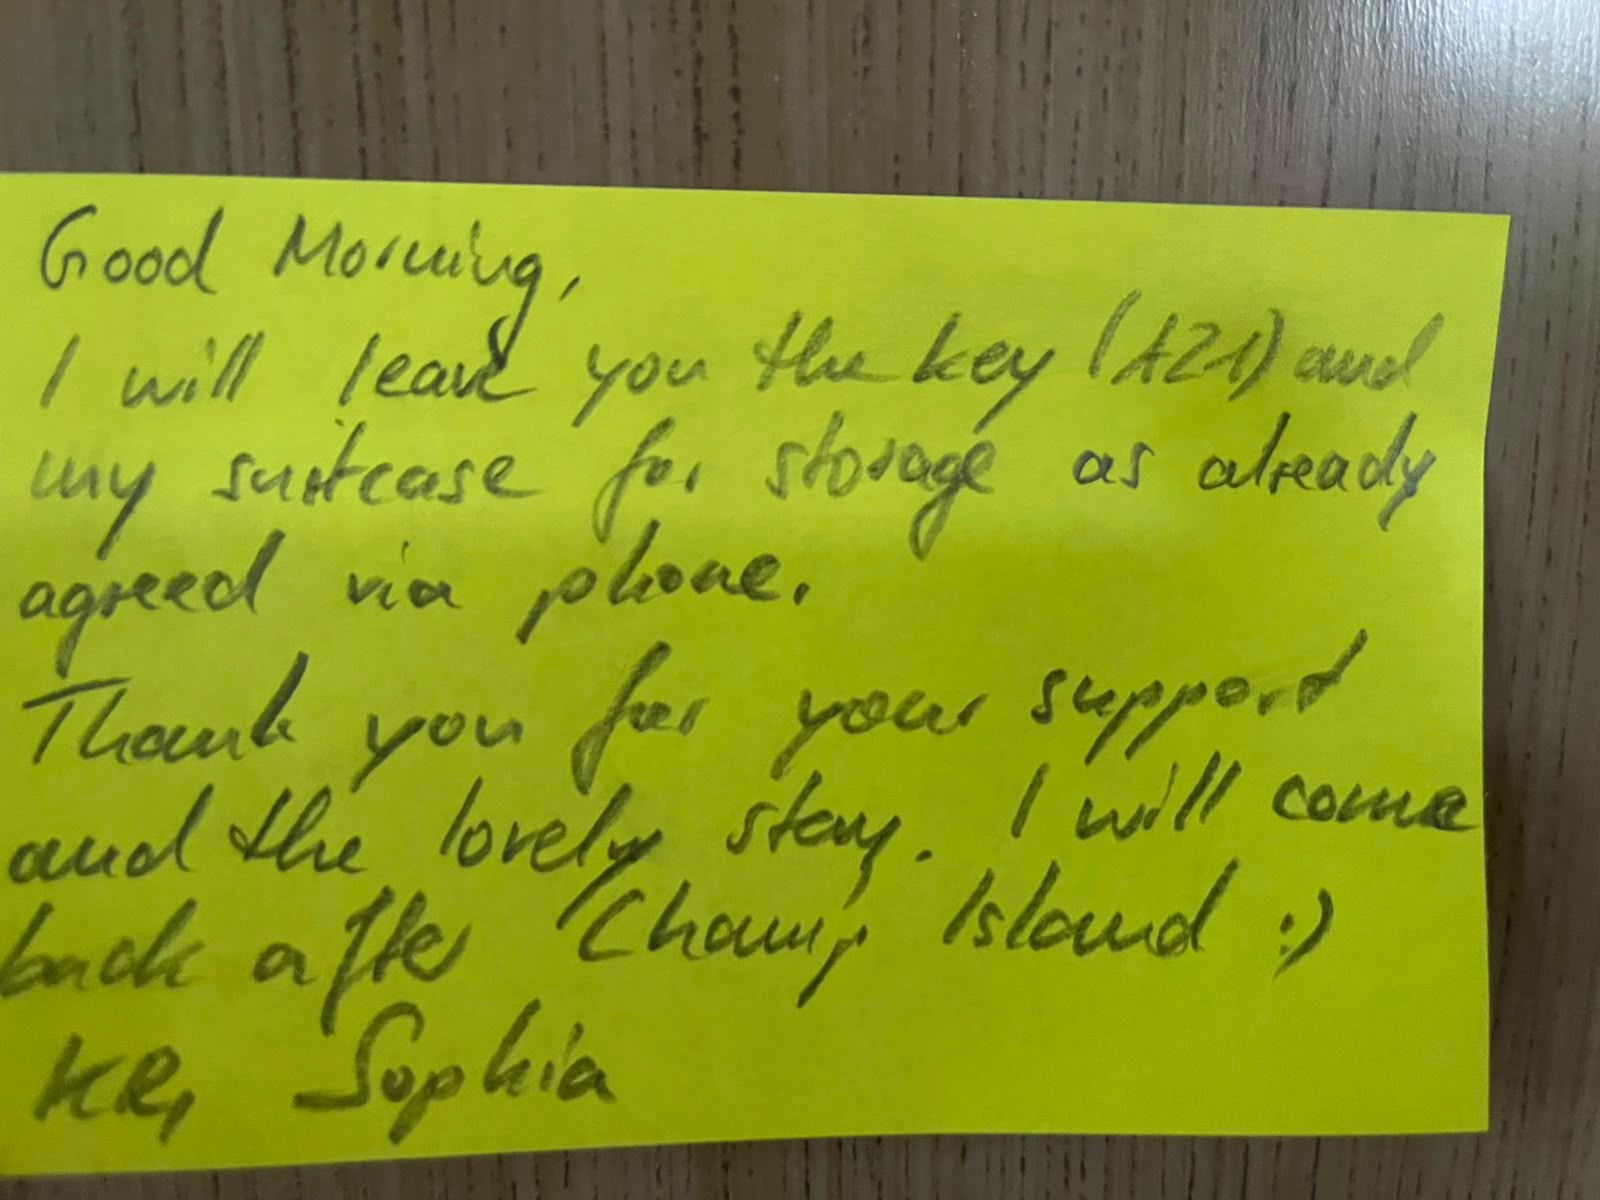 Good Morning,
I will leave you the key (A21) and
my suitcase for storage as already
agreed via phone.
Thank you for your support
and the lovely stay. I will come
back after Champ Island :)
KR, Sophia